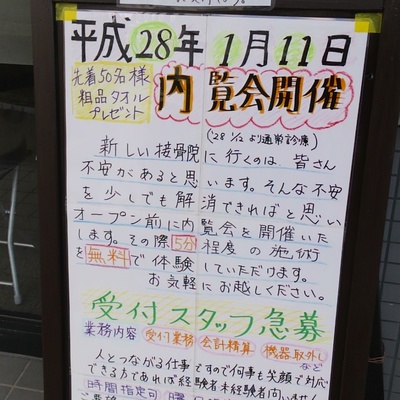 平成28年 1月11日
先着50名様
粗品タオル
プレゼント
内覧会開催
('28 1/12 より通常診療)
新しい接骨院に行くのは、皆さん
不安があると思います。そんな不安
を少しでも解消できればと思い
オープン前に内覧会を開催いた
します。その際5分程度の施術
を無料で体験していただけます。
お気軽にお越しください。
受付スタッフ急募
業務内容 受付業務 会計精算 機器取外し
など
人とつながる仕事ですので何事も笑顔で対応
できる方であれば経験者未経験者問いません
時間指定可